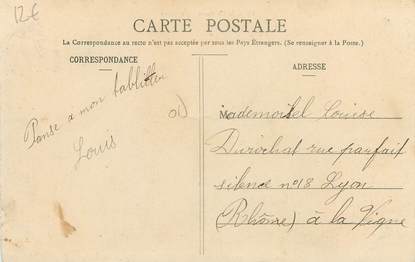 12€
CARTE POSTALE
La Correspondance au recto n'est pas acceptée par tous les Pays Etrangers. (Se renseigner à la Poste.)
CORRESPONDANCE
ADRESSE
Panse a mon
Louis
01
Mademoisel Louise
rue parfait
silence n°18 Lyon
(Rhône) à la Vigne